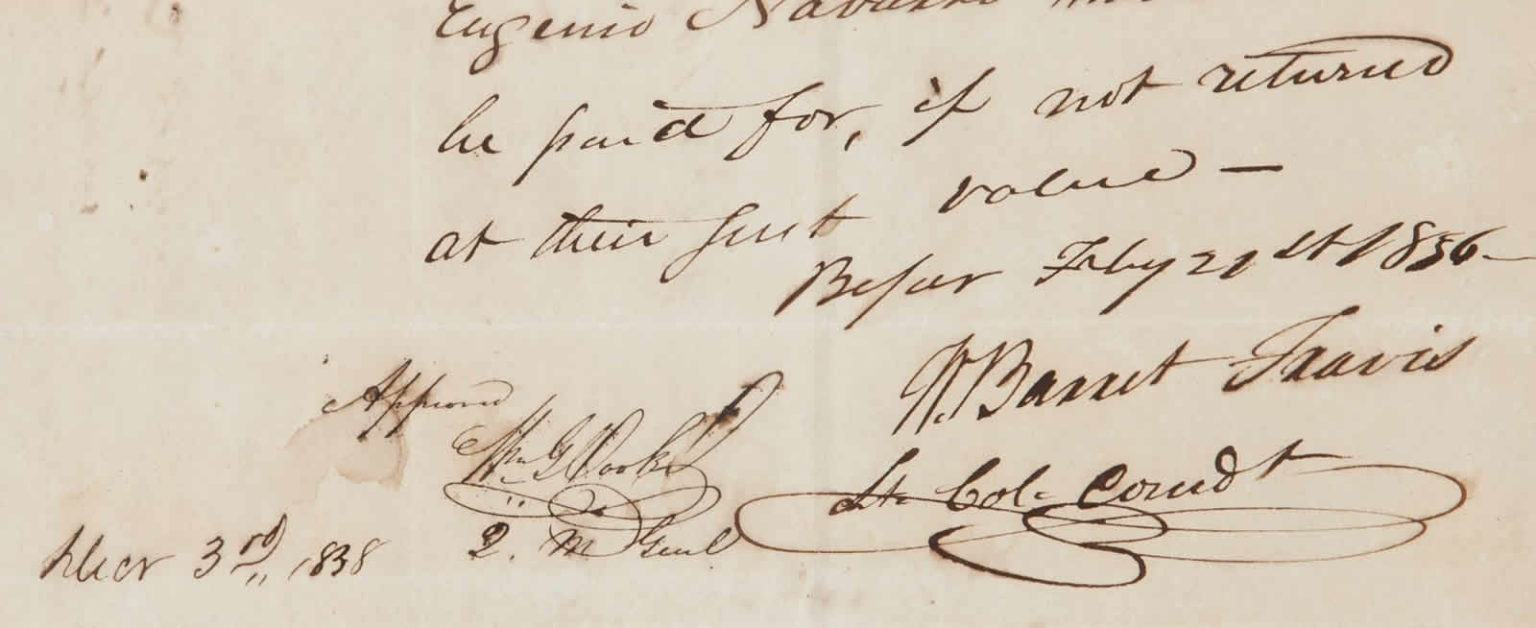 Eugenio Navarro
be paid for, if not returned
at their just value —
Bejar Feby 21st 1836 —
W. Barret Travis
Lt. Col. Comdt
Approved
Wm G Cooke
Q. M Genl
Decr 3rd, 1838